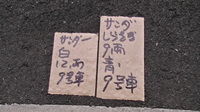 サンダー
白
12,両
9号車
サンダ
しらさぎ
9両
青い
9号車